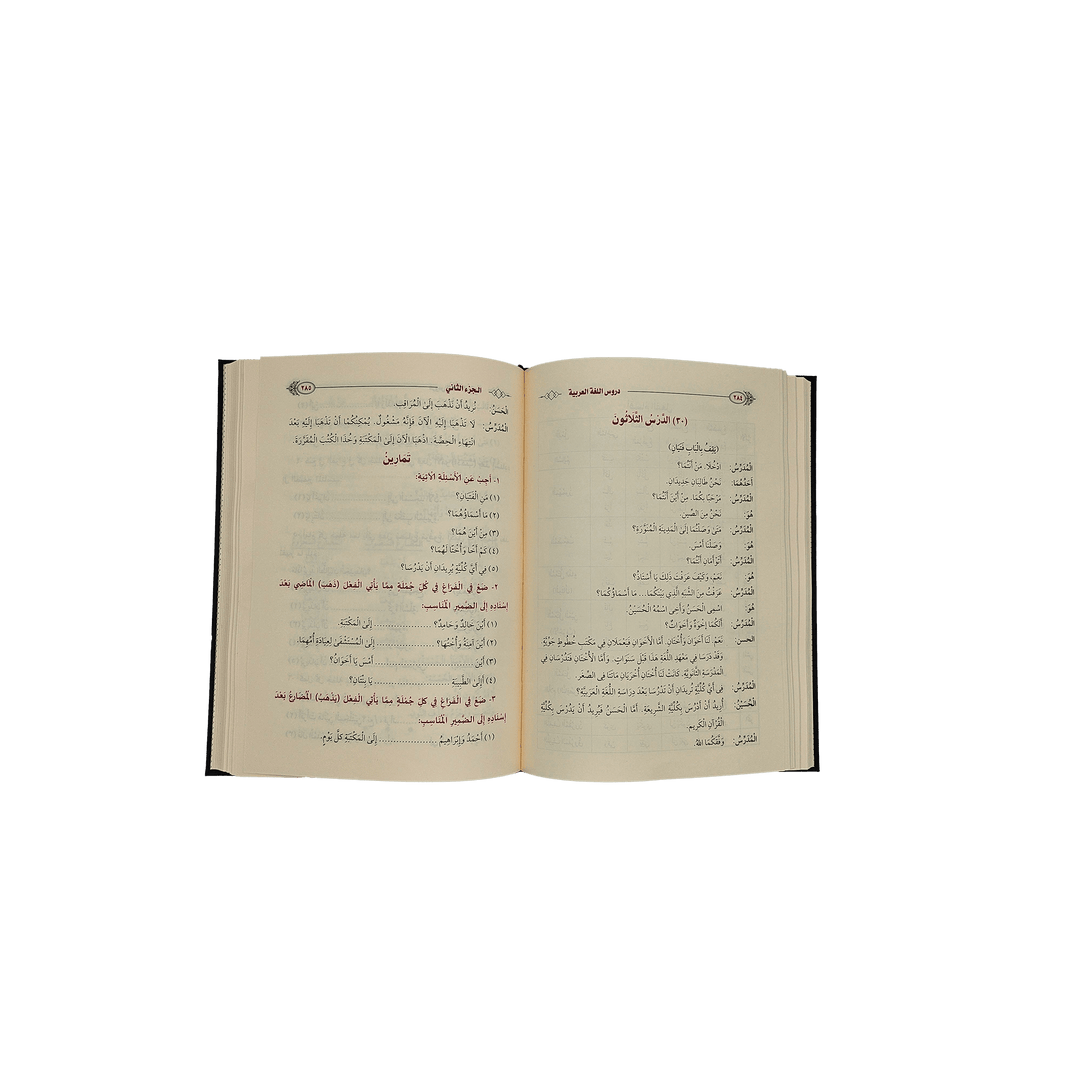 دروس اللغة العربية
٢٨٤
(٣٠) الدَّرْسُ الثَّلَاثُونَ
(يَقِفُ بِالْبَابِ فَتَيَانِ)
الْمُدَرِّسُ: ادْخُلَا. مَنْ أَنْتُمَا؟
أَحَدُهُمَا: نَحْنُ طَالِبَانِ جَدِيدَانِ.
الْمُدَرِّسُ: مَرْحَبًا بِكُمَا. مِنْ أَيْنَ أَنْتُمَا؟
هُوَ: نَحْنُ مِنَ الصِّينِ.
الْمُدَرِّسُ: مَتَى وَصَلْتُمَا إِلَى الْمَدِينَةِ الْمُنَوَّرَةِ؟
هُوَ: وَصَلْنَا أَمْسِ.
الْمُدَرِّسُ: أَتَوْأَمَانِ أَنْتُمَا؟
هُوَ: نَعَمْ، وَكَيْفَ عَرَفْتَ ذَلِكَ يَا أُسْتَاذُ؟
الْمُدَرِّسُ: عَرَفْتُ مِنَ الشَّبَهِ الَّذِي بَيْنَكُمَا... مَا أَسْمَاؤُكُمَا؟
هُوَ: اسْمِي الْحَسَنُ وَأَخِي اسْمُهُ الْحُسَيْنُ.
الْمُدَرِّسُ: أَلَكُمَا إِخْوَةٌ وَأَخَوَاتٌ؟
الحسن: نَعَمْ، لَنَا أَخَوَانِ وَأُخْتَانِ. أَمَّا الْأَخَوَانِ فَيَعْمَلَانِ فِي مَكْتَبِ خُطُوطٍ جَوِّيَّةٍ.
وَقَدْ دَرَسَا فِي مَعْهَدِ اللُّغَةِ هَذَا قَبْلَ سَنَوَاتٍ. وَأَمَّا الْأُخْتَانِ فَتَدْرُسَانِ فِي
الْمَدْرَسَةِ الثَّانَوِيَّةِ. كَانَتْ لَنَا أُخْتَانِ أُخْرَيَانِ مَاتَتَا فِي الصِّغَرِ.
الْمُدَرِّسُ: فِي أَيِّ كُلِّيَّةٍ تُرِيدَانِ أَنْ تَدْرُسَا بَعْدَ دِرَاسَةِ اللُّغَةِ الْعَرَبِيَّةِ؟
الْحُسَيْنُ: أُرِيدُ أَنْ أَدْرُسَ بِكُلِّيَّةِ الشَّرِيعَةِ. أَمَّا الْحَسَنُ فَيُرِيدُ أَنْ يَدْرُسَ بِكُلِّيَّةِ
الْقُرْآنِ الْكَرِيمِ.
الْمُدَرِّسُ: وَفَّقَكُمَا اللهُ.
الجزء الثاني
٢٨٥
الْحَسَنُ: نُرِيدُ أَنْ نَذْهَبَ إِلَى الْمُرَاقِبِ.
الْمُدَرِّسُ: لَا تَذْهَبَا إِلَيْهِ الْآنَ فَإِنَّهُ مَشْغُولٌ. يُمْكِنُكُمَا أَنْ تَذْهَبَا إِلَيْهِ بَعْدَ
انْتِهَاءِ الْحِصَّةِ. اذْهَبَا الْآنَ إِلَى الْمَكْتَبَةِ وَخُذَا الْكُتُبَ الْمُقَرَّرَةَ.
تَمَارِينُ
١- أَجِبْ عَنِ الْأَسْئِلَةِ الْآتِيَةِ:
(١) مَنِ الْفَتَيَانِ؟
(٢) مَا أَسْمَاؤُهُمَا؟
(٣) مِنْ أَيْنَ هُمَا؟
(٤) كَمْ أَخًا وَأُخْتًا لَهُمَا؟
(٥) فِي أَيِّ كُلِّيَّةٍ يُرِيدَانِ أَنْ يَدْرُسَا؟
٢- ضَعْ فِي الْفَرَاغِ فِي كُلِّ جُمْلَةٍ مِمَّا يَأْتِي الْفِعْلَ (ذَهَبَ) الْمَاضِيَ بَعْدَ
إِسْنَادِهِ إِلَى الضَّمِيرِ الْمُنَاسِبِ:
(١) أَيْنَ خَالِدٌ وَحَامِدٌ؟ .................. إِلَى الْمَكْتَبَةِ.
(٢) أَيْنَ آمِنَةُ وَأُخْتُهَا؟ .................. إِلَى الْمُسْتَشْفَى لِعِيَادَةِ أُمِّهِمَا.
(٣) أَيْنَ .................. أَمْسِ يَا أَخَوَانُ؟
(٤) أَإِلَى الطَّبِيبَةِ .................. يَا بِنْتَانِ؟
٣- ضَعْ فِي الْفَرَاغِ فِي كُلِّ جُمْلَةٍ مِمَّا يَأْتِي الْفِعْلَ (يَذْهَبُ) الْمُضَارِعَ بَعْدَ
إِسْنَادِهِ إِلَى الضَّمِيرِ الْمُنَاسِبِ:
(١) أَحْمَدُ وَإِبْرَاهِيمُ .................. إِلَى الْمَكْتَبَةِ كُلَّ يَوْمٍ.